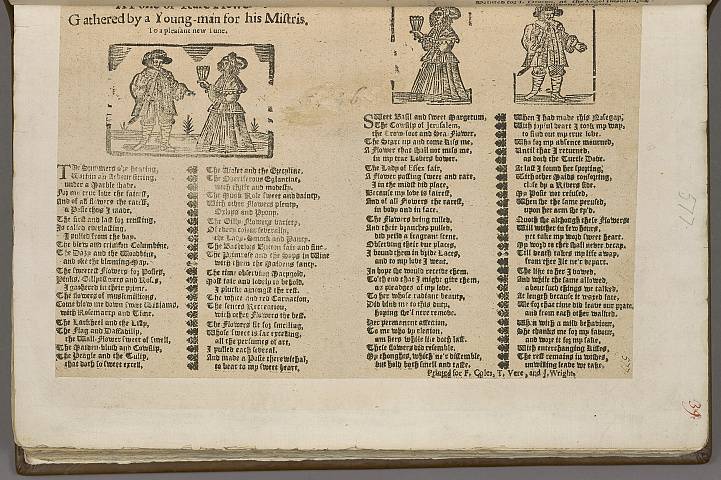 A Posie of Rare Flowers
Gathered by a Young-man for his Mistris.
To a pleasant new Tune.
The Summers o're heating,
Within an Arbor sitting,
under a Marble shade,
For my true love the fairest,
And of all flowers the rarest,
a Posie thus I made.
The first and last for trusting,
Is called everlasting,
I pulled from the bay.
The blew and crimson Columbine,
The Dazy and the Woodbine,
and eke the blooming May.
The sweetest flowers for Posies,
Pinks, Gilliflowers and Roses,
I gathered in their prime,
The flowers of musk-millions,
Come blow me down sweet Williams,
with Rosemary and Time.
The Larkheel and the Lilly,
The Flag and Daffadilly,
the Wall-Flower sweet of smell,
The Maiden-blush and Cowslip,
The Peagle and the Tulip,
that doth so sweet excell,
The Violet and the
The Odoriferous Eglantine,
with chaste and modesty.
The Musk Rose sweet and dainty,
With other Flowers plenty,
Oxlops and Pyony.
The Gilly-Flowers variety,
Of every colour severally,
the Lady-Smock and Pansy.
The Batchelors Button fair and fine,
The Primrose and the Sops in Wine
with them the Maidens fancy.
The time observing Marygold,
Most fair and lovely to behold,
I pluckt amongst the rest.
The white and red Carnation,
The senced Recreation,
with other Flowers the best.
The Flowers fit for smelling,
Whose sweet is far exceeding,
all the perfumes of art,
I pulled each several.
And made a Posie therewithal,
to bear to my sweet heart,
Sweet Basil and sweet Margerum,
The Cowslip of Jerusalem,
the Crow-foot and Sea Flower,
The Start up and come kiss me,
A Flower that shall not miss me,
in my true Lovers bower.
The Lady of Essex fair,
A Flower passing sweet and rare,
I in the midst did place,
Because my love is fairest,
And of all Flowers the rarest,
in body and in face.
The Flowers being culled,
And their branches pulled,
did yeeld a fragrant scene,
Observing their due places,
I bound them in bride Laces,
and to my love I went.
In hope she would receive them,
To th'end that I might give them,
as presages of my love
To her whose radiant beauty,
Did bind me to this duty,
hoping she'l nere remove.
Her permanent affection,
To me who by election,
am hers while life doth last,
These flowers did resemble,
My thoughts, which ne'r dissemble,
but hold both smell and taste.
When I had made this Nosegay,
With joyful heart I took my way,
to find out my true love,
Who for my absence mourned,
Until that I returned,
as doth the Turtle Dove.
At last I found her sporting,
With other Maids consorting,
close by a Rivers side.
My Posie not refused,
When she the same perused,
upon her arm she ty'd.
Quoth she although these Flowers
Will wither in few hours,
yet take my word sweet heart,
My word to thee shall never decay,
Till death takes my life away,
from thee Ile ne'r depart.
The like to her I vowed,
And while the same allowed,
about such things we talked,
At length because it waxed late,
We for that time did leave our prate,
and from each other walked.
When with a mild behaviour,
She thanks me for my favour,
and wore it for my sake,
With enterchanging kisses,
The rest remains in wishes,
unwilling leave we take.
Printed for F. Coles, T. Vere, and J. Wright.
577
39.